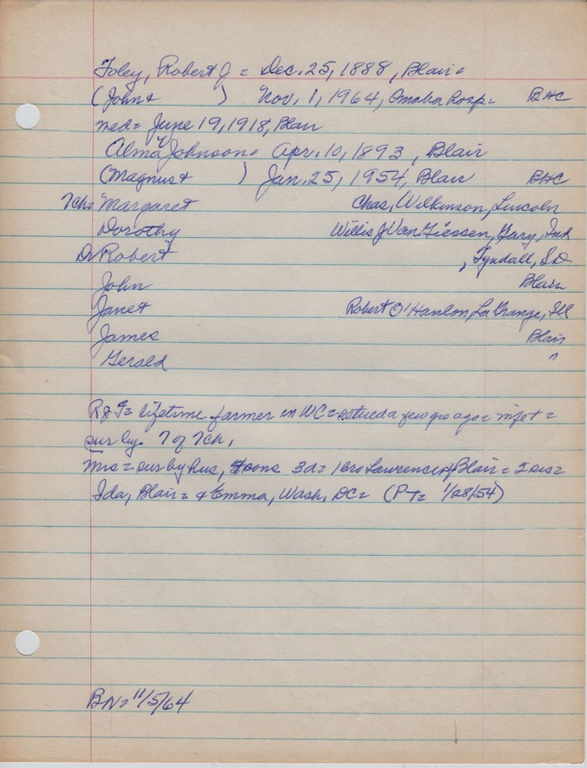 Foley, Robert J = Dec. 25, 1888, Blair =
(John & ) Nov. 1, 1964, Omaha Hosp = BHC
med = June 19, 1918, Blair
Alma V Johnson = Apr. 10, 1893, Blair
(Magnus & ) Jan. 25, 1954, Blair BHC
7ch = Margaret Chas, Wilkinson, Lincoln
Dorothy Willis J Van Giessen, Gary, Ind
Dr Robert , Tyndall, S.D
John Blair
Janet Robert O'Hanlon, La Grange, Ill
James Blair
Gerald "
R J F = lifetime farmer in WC = retired a few yrs ago =
sur by. 7 of 7ch,
Mrs = sur by hus, sons 3d = 1 bro Lawrence of Blair = 2 sis =
Ida, Blair = & Emma, Wash, DC = (PT = 1/28/54)
BN = 11/5/64